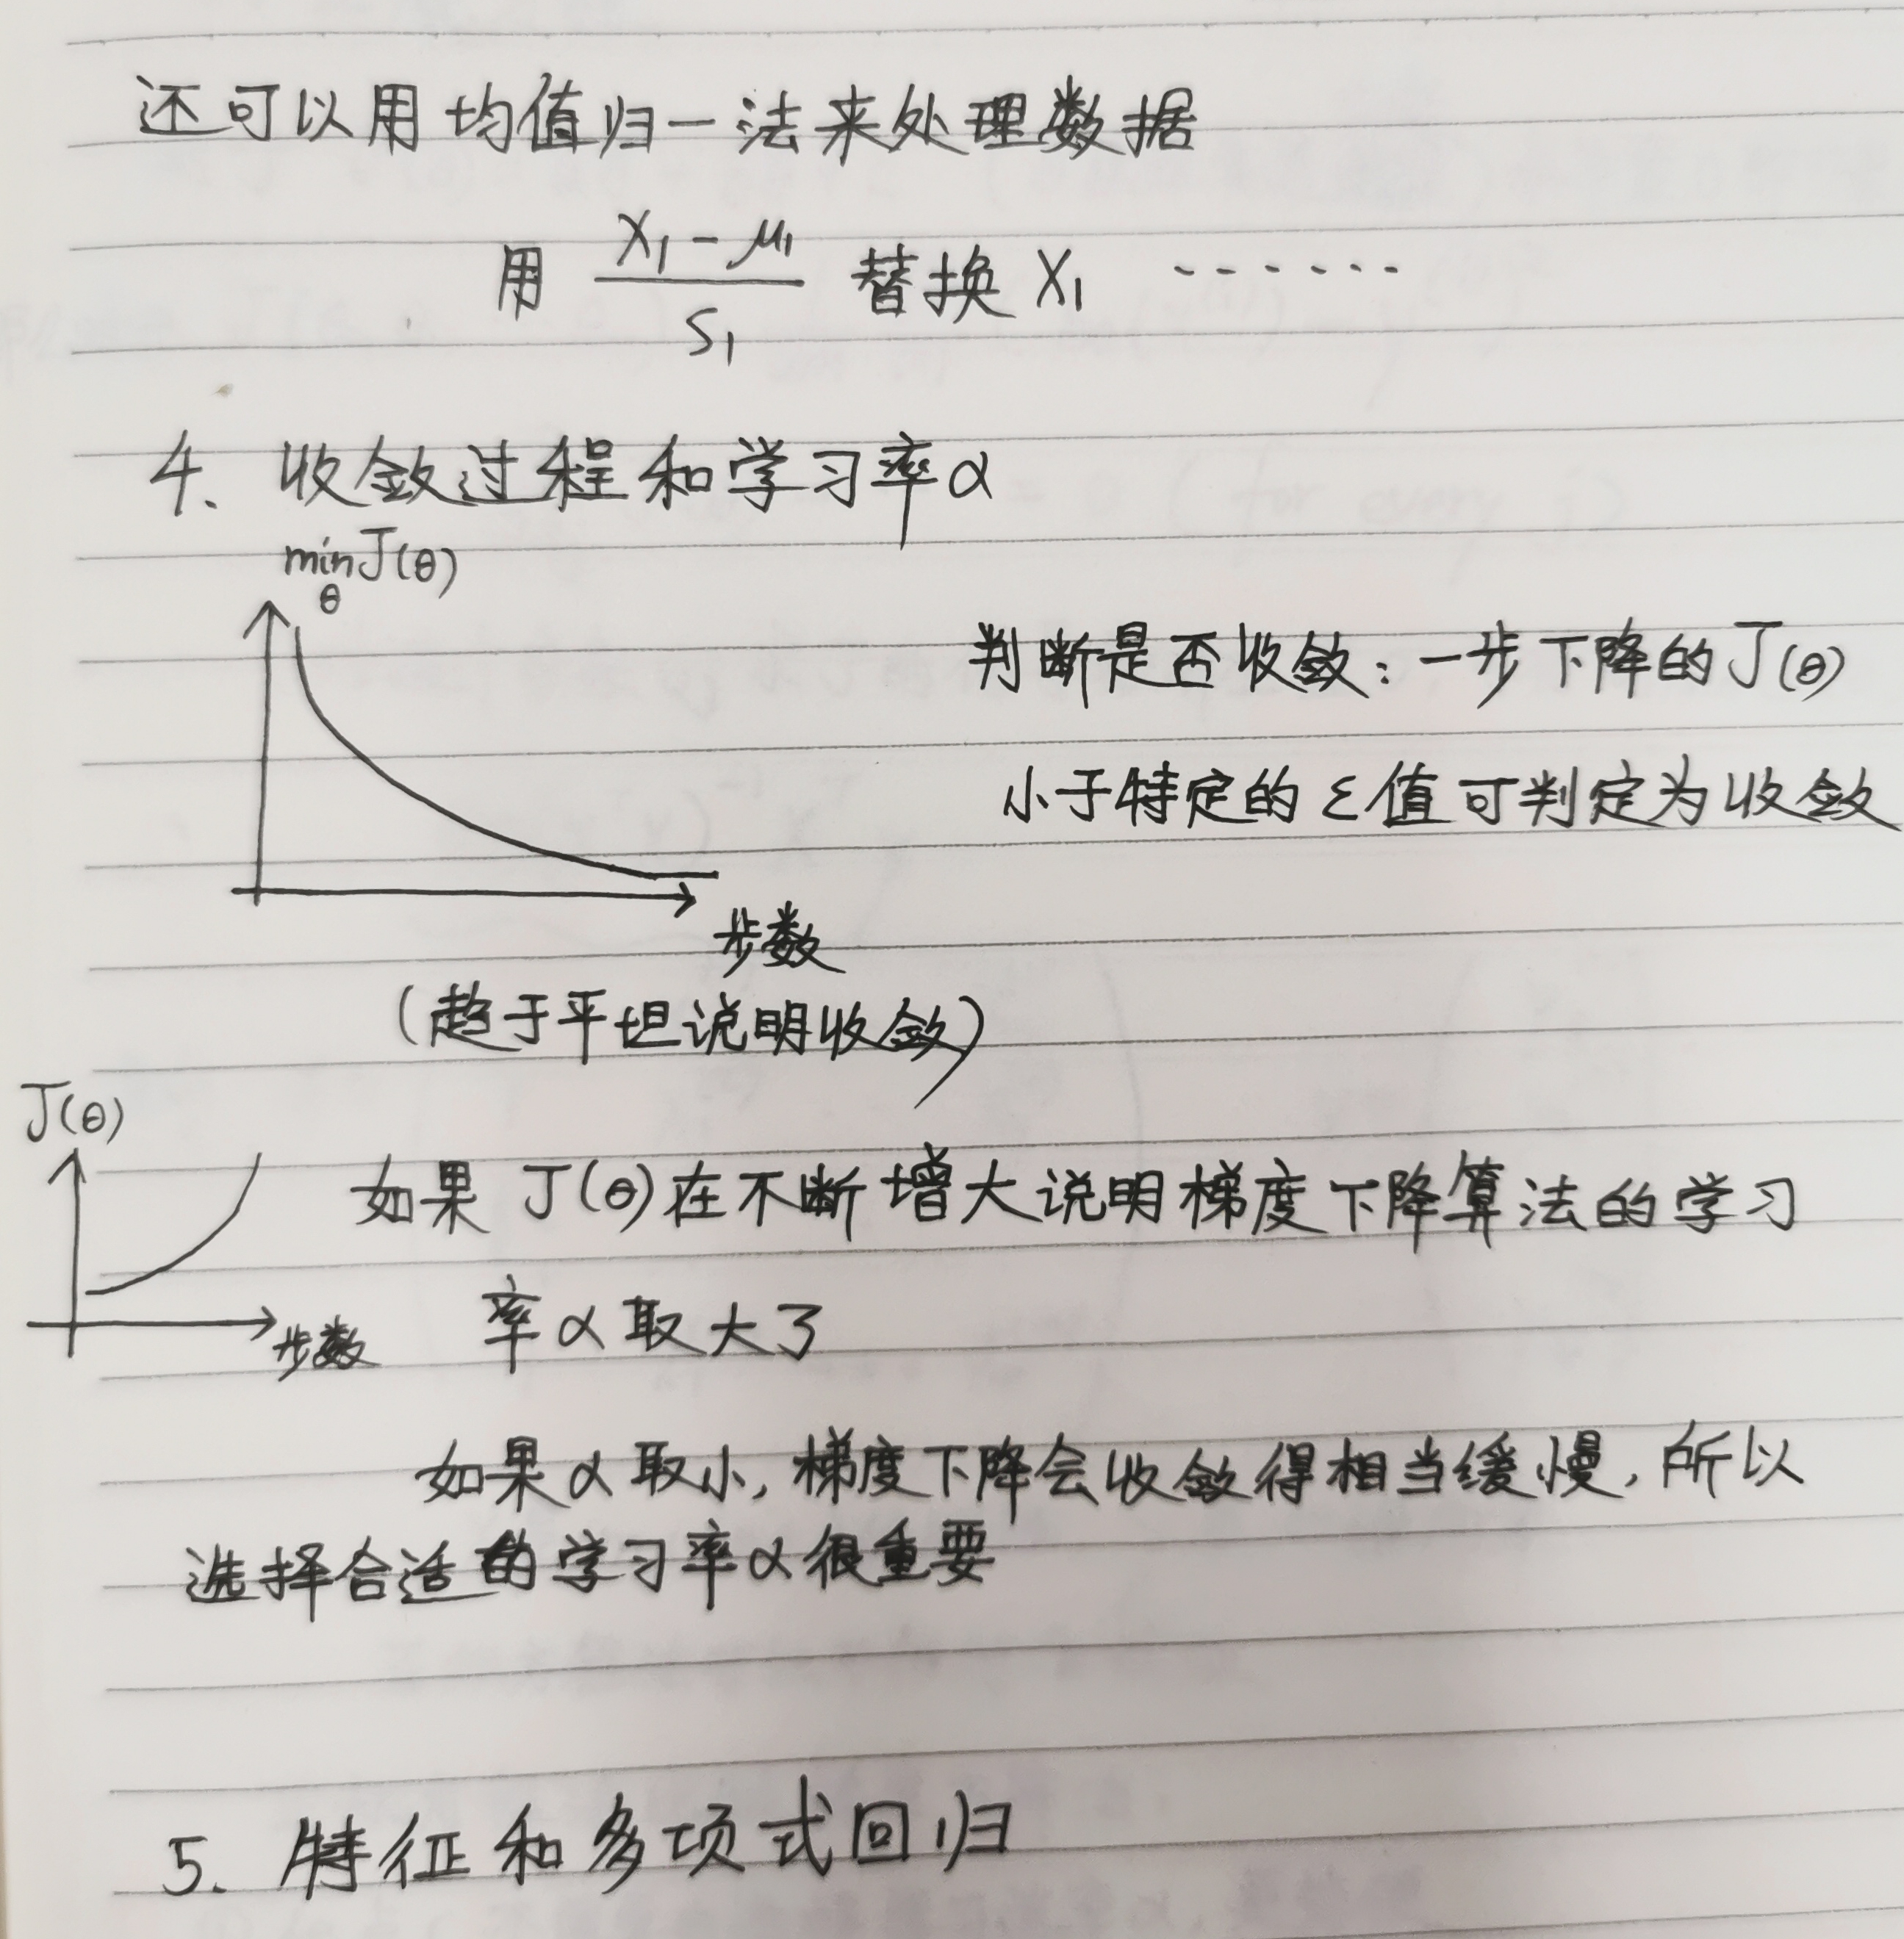 还可以用均值归一法来处理数据
用 (X₁-μ₁)/S₁ 替换 X₁ ······
4. 收敛过程和学习率α
min J(θ)
θ
判断是否收敛:一步下降的J(θ)
小于特定的ε值可判定为收敛
步数
(趋于平坦说明收敛)
J(θ)
如果 J(θ)在不断增大说明梯度下降算法的学习
步数
率α取大了
如果α取小,梯度下降会收敛得相当缓慢,所以
选择合适的学习率α很重要
5. 特征和多项式回归